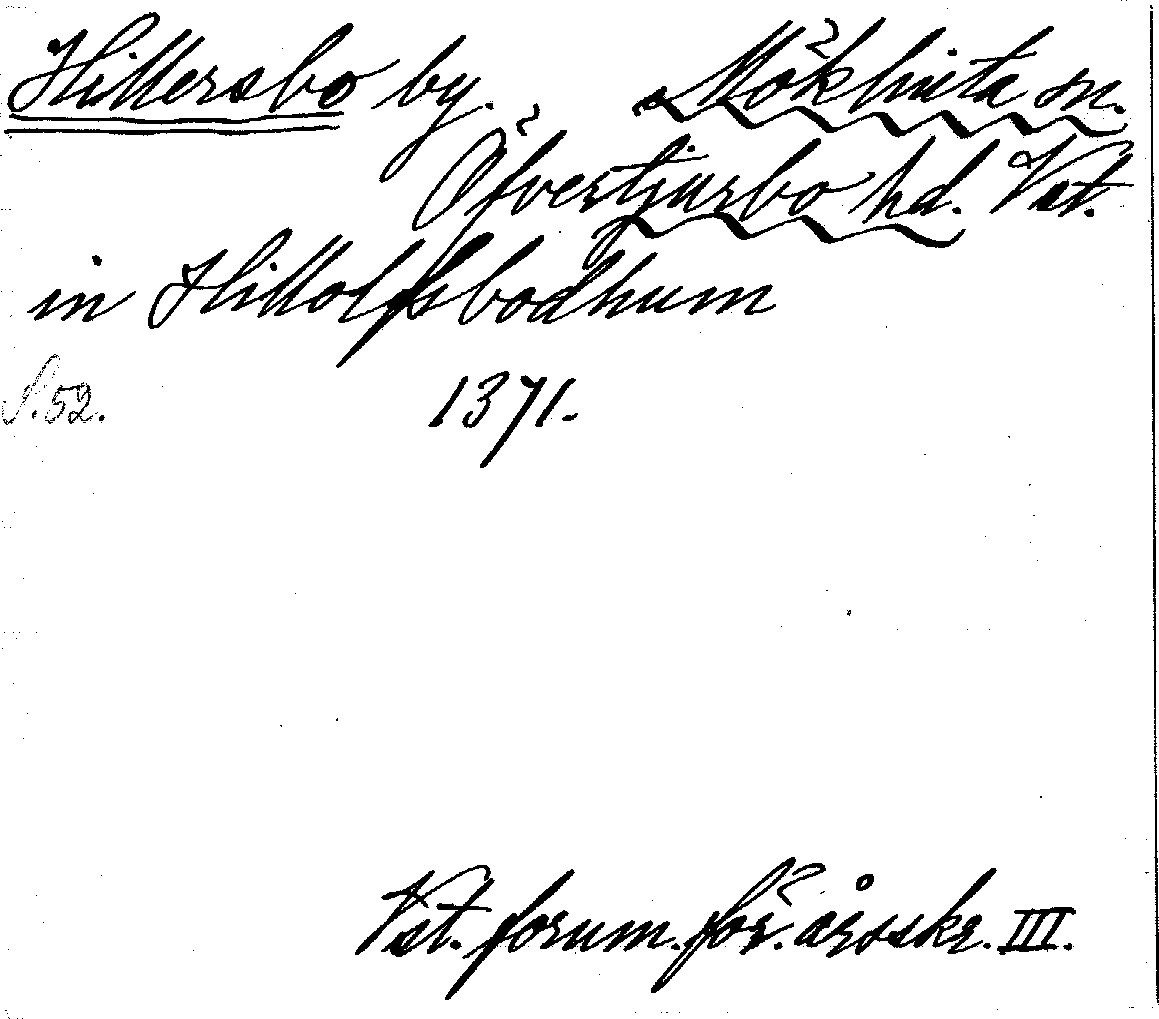 Hillersbo by. Möklinta sn.
Öfvertjurbo hd. Vst.
in Hillolfsbodhum
S. 52. 1371.
Vst. fornm. för. årsskr. III.